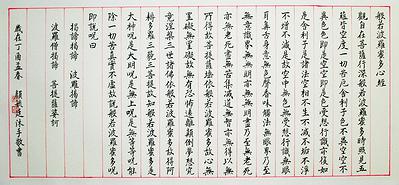 般若波羅蜜多心經
觀自在菩薩行深般若波羅蜜多時照見五
蘊皆空度一切苦厄舍利子色不異空空不
異色色即是空空即是色受想行識亦復如
是舍利子是諸法空相不生不滅不垢不淨
不增不減是故空中無色無受想行識無眼
耳鼻舌身意無色聲香味觸法無眼界乃至
無意識界無無明亦無無明盡乃至無老死
亦無老死盡無苦集滅道無智亦無得以無
所得故菩提薩埵依般若波羅蜜多故心無
罣礙無罣礙故無有恐怖遠離顛倒夢想究
竟涅槃三世諸佛依般若波羅蜜多故得阿
耨多羅三藐三菩提故知般若波羅蜜多是
大神咒是大明咒是無上咒是無等等咒能
除一切苦真實不虛故說般若波羅蜜多咒
即說咒曰
揭諦揭諦 波羅揭諦
波羅僧揭諦 菩提薩婆訶
歲在丁酉孟春 沐手敬書